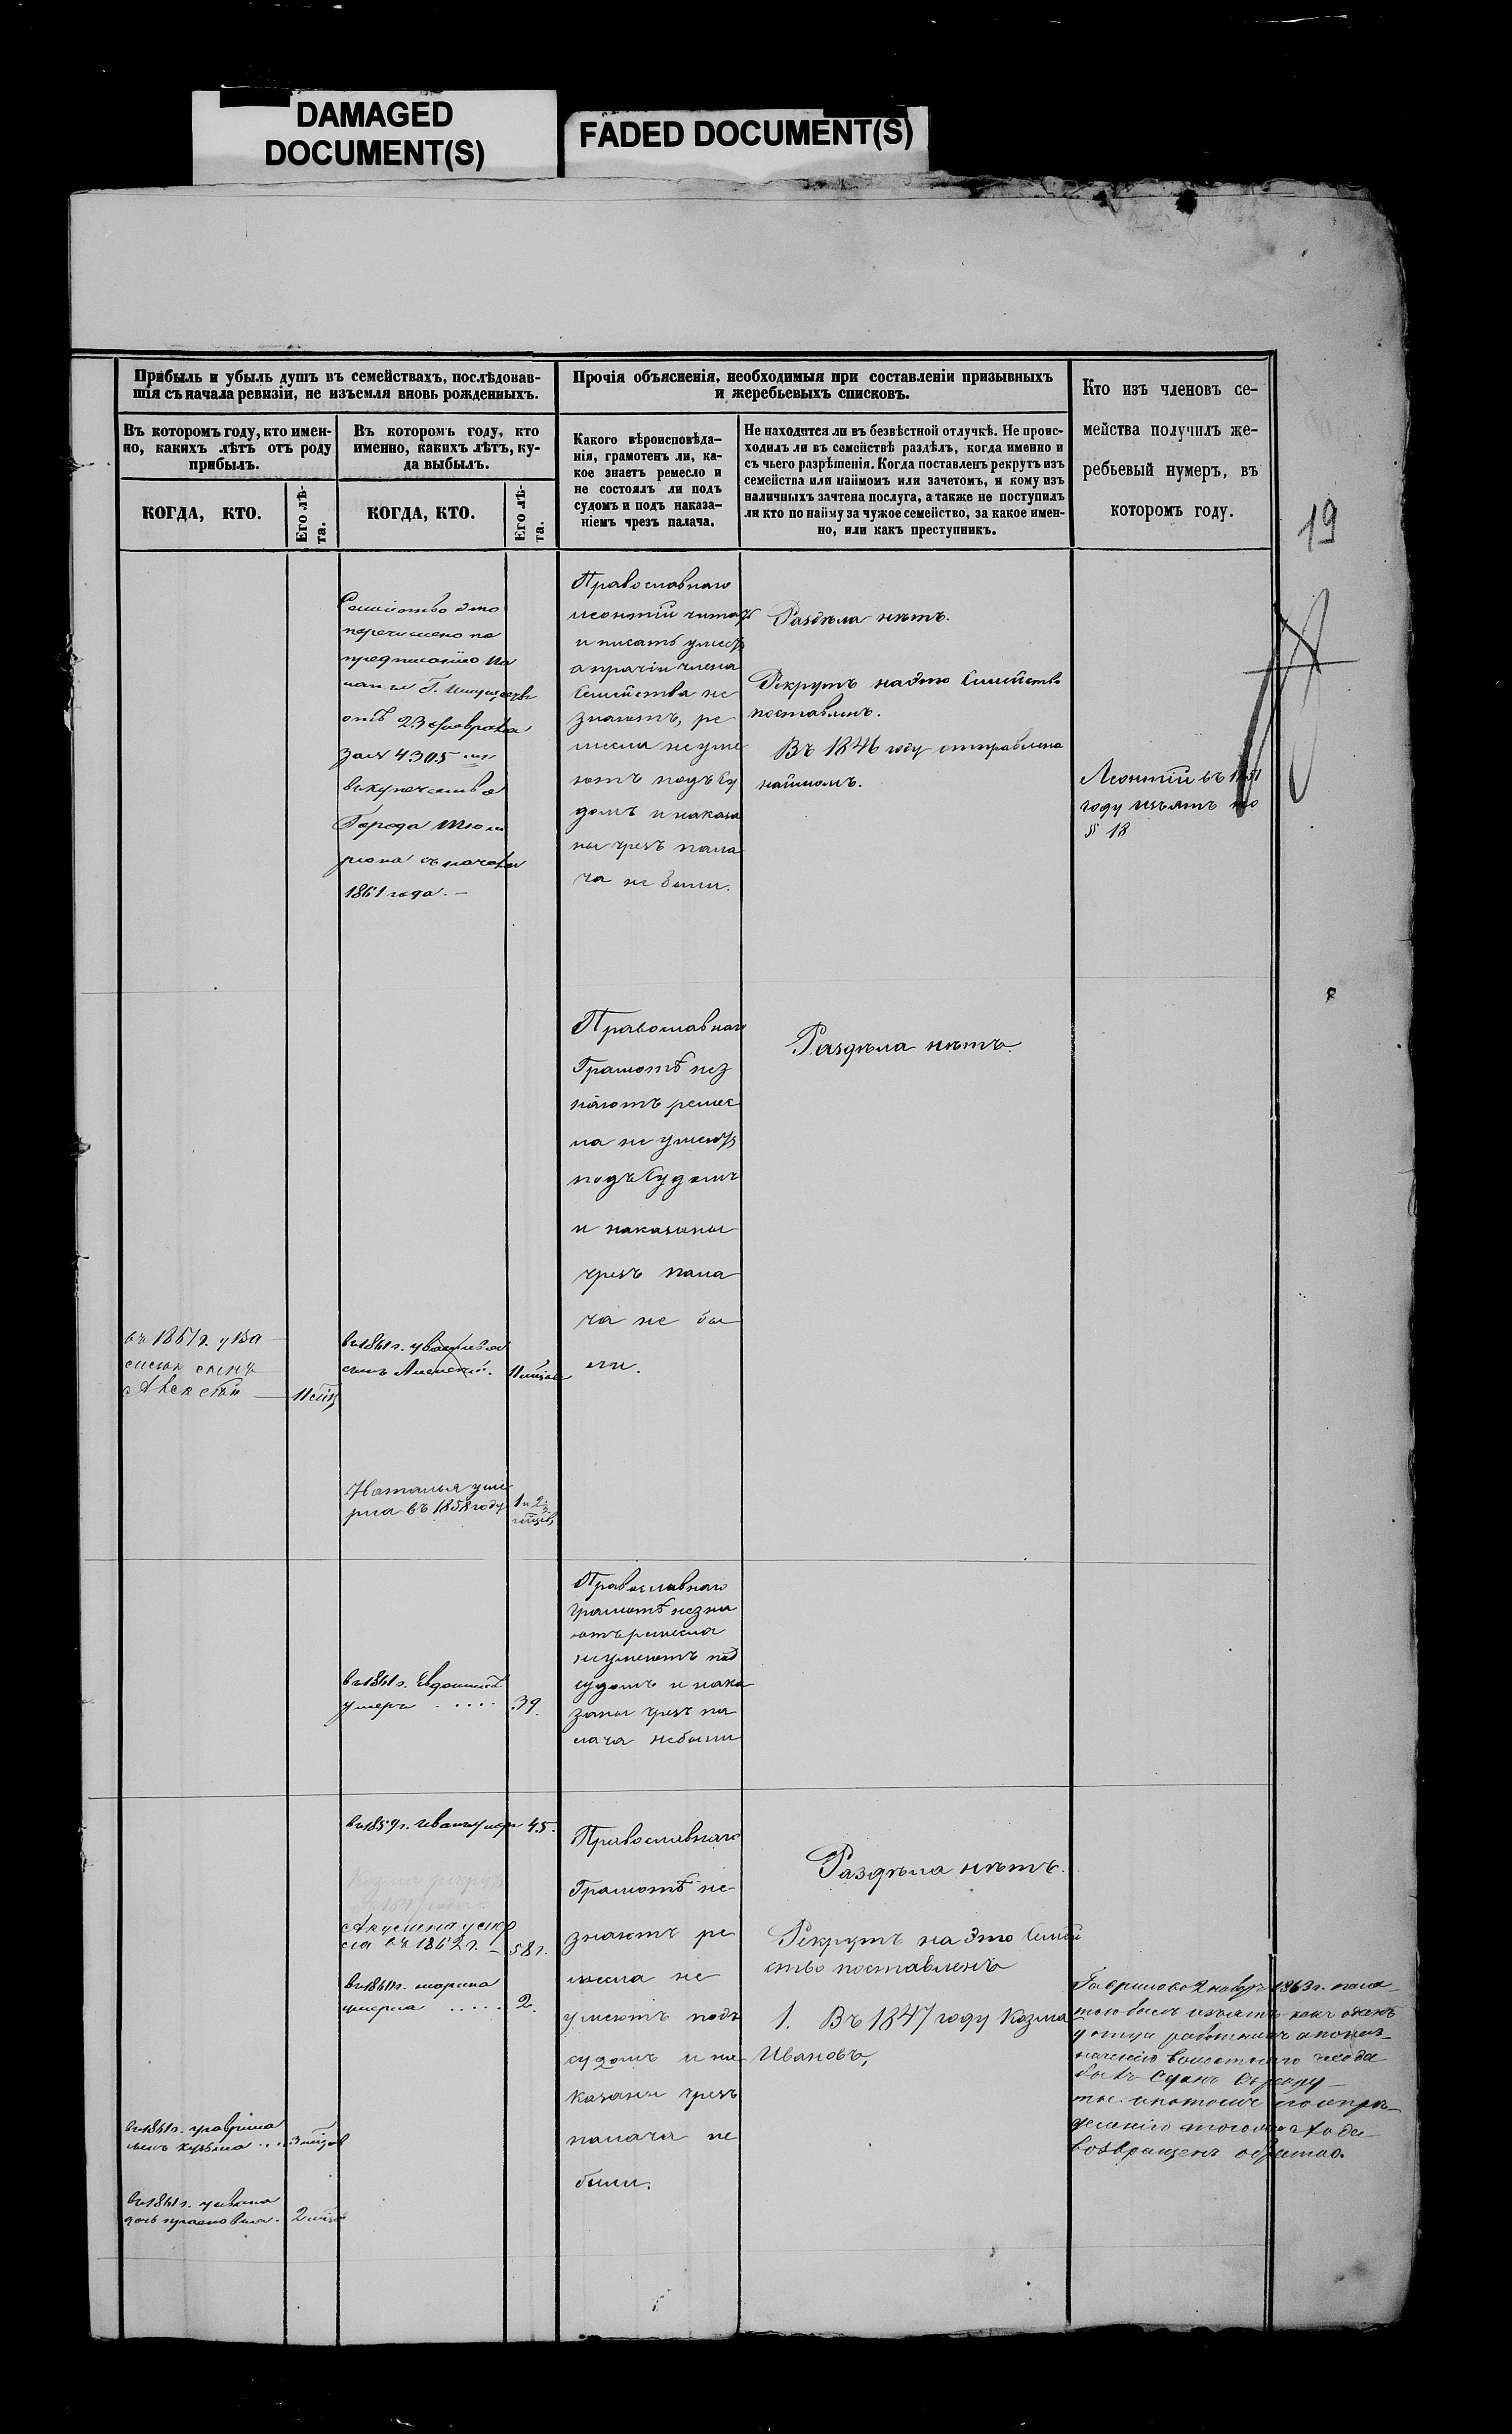 DAMAGED
DOCUMENT(S)
FADED DOCUMENT(S)
Прибыль и убыль душъ въ семействахъ, послѣдовав-
шія съ начала ревизіи, не изъемля вновь рожденныхъ.
Прочія объясненія, необходимыя при составленіи призывныхъ
и жеребьевыхъ списковъ.
Кто изъ членовъ се-
мейства получилъ же-
ребьевый нумеръ, въ
которомъ году.
Въ которомъ году, кто имен-
но, какихъ лѣтъ отъ роду
прибылъ.
Въ которомъ году, кто
именно, какихъ лѣтъ, ку-
да выбылъ.
Какого вѣроисповѣда-
нія, грамотенъ ли, ка-
кое знаетъ ремесло и
не состоялъ ли подъ
судомъ и подъ наказа-
ніемъ чрезъ палача.
Не находится ли въ безвѣстной отлучкѣ. Не проис-
ходилъ ли въ семействѣ раздѣлъ, когда именно и
съ чьего разрѣшенія. Когда поставленъ рекрутъ изъ
семейства или наймомъ или зачетомъ, и кому изъ
наличныхъ зачтена послуга, а также не поступилъ
ли кто по найму за чужое семейство, за какое имен-
но, или какъ преступникъ.
КОГДА, КТО.
Его лѣ-
та.
КОГДА, КТО.
Его лѣ-
та.
19
Семейство это
перечислено по
предписанію Па
латы Г. Имуществъ
отъ 23 февраля
за № 4305
въ купечество
Города
съ начала
1861 года. –
Православнаго
Леонтій читать
и писать умѣетъ
а прочіи члены
Семейства не
знаютъ, ре
месла не умѣ
ютъ подъ Су
домъ и наказа
ны чрезъ пала
ча не были.
Раздѣла нѣтъ.
Рекрутъ на это Семейство
поставленъ.
Въ 1846 году отправлена
наймомъ.
Леонтій въ
году изъятъ по
§ 18
Православнаго
Грамотѣ нез
наютъ ремес
ла не умѣютъ
подъ Судомъ
и наказаны
чрезъ пала
ча не бы
ли.
Раздѣла нѣтъ.
въ 1861 г. у Ва
силья сынъ
Алексѣй
11 мѣс
въ 1861 г. у Василья
сынъ Алексѣй.
11 мѣсяц
Наталья уме
рла въ 1858 году
1 и 2
мѣсяц
Православнаго
Грамотѣ незна
ютъ ремесла
не умеютъ под
судомъ и нака
заны чрезъ па
лача небыли
въ 1861 г. Евдокимъ
умеръ . . . . .
39.
въ 1859 г. Иванъ умер
45.
Козма рекрутъ
въ 1847 году
Акулина умер
ла въ 1862 г. –
58 г.
въ 1861 г. Марина
умерла . . . . .
2.
Православнаго
Грамотѣ не
знаютъ ре
месла не
умѣютъ подъ
судомъ и на
казаны чрезъ
палача не
были.
Раздѣла нѣтъ.
Рекрутъ на это Семей
ство поставленъ
1. Въ 1847 году Козма
Ивановъ,
Гаврило во 2 наборъ 1863 г. пала
тою былъ изъятъ какъ одинъ
у отца работникъ
былъ Сданъ въ рекру
ты. и потомъ по опре
делению того же года
возвращенъ обратно.
въ 1861 г. у Гаврила
сынъ Кузьма . . .
3 мѣсяц
въ 1861 г. у Ивана
дочь Прасковья.
2 мѣсяц